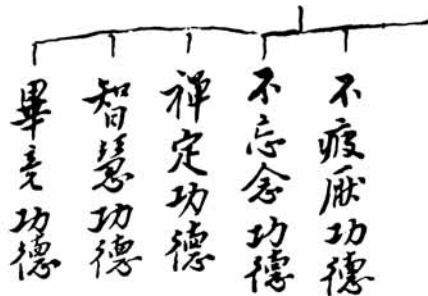 不疲厭功德
不忘念功德
禪定功德
智慧功德
畢竟功德